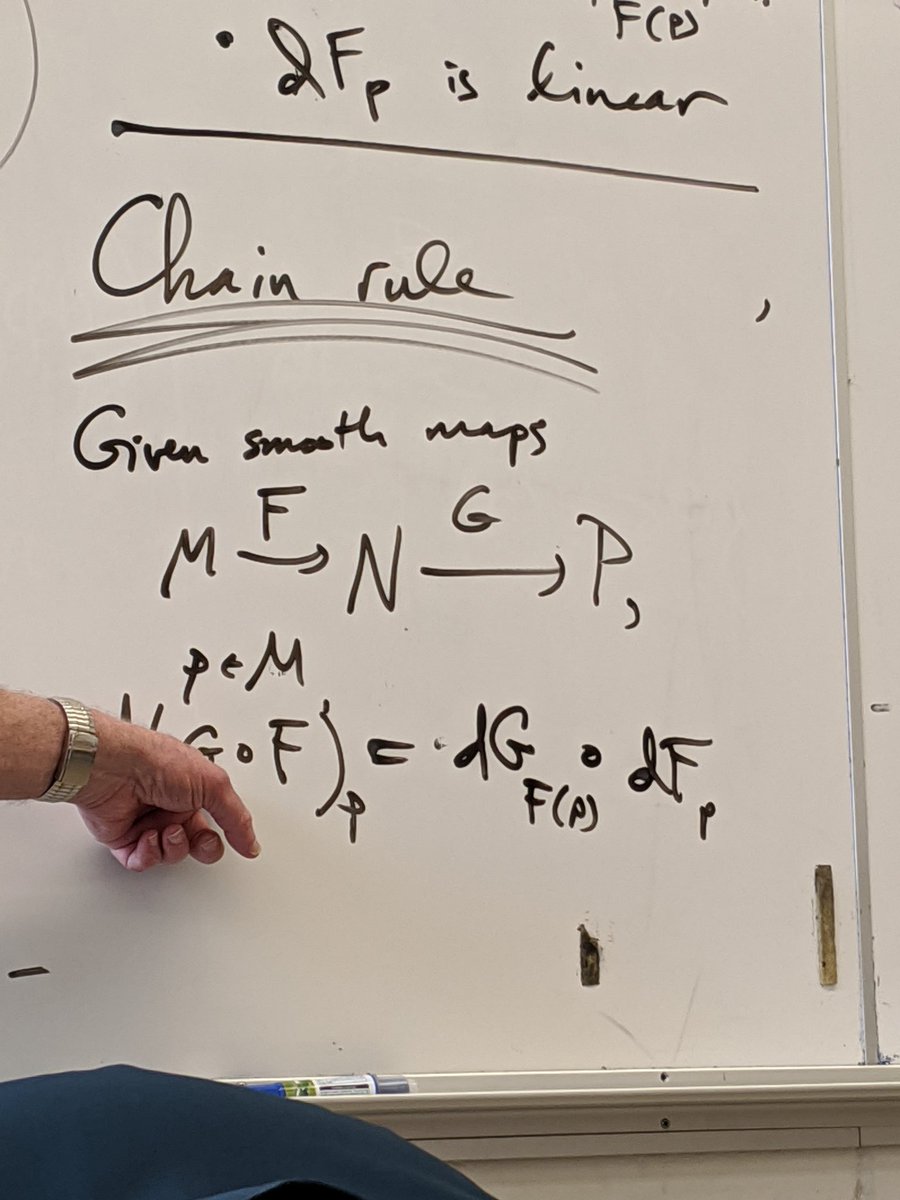 F(p)
• dF_p is linear
Chain rule
Given smooth maps
M →^F N →^G P,
p ∈ M
G∘F)_p = dG_{F(p)} ∘ dF_p